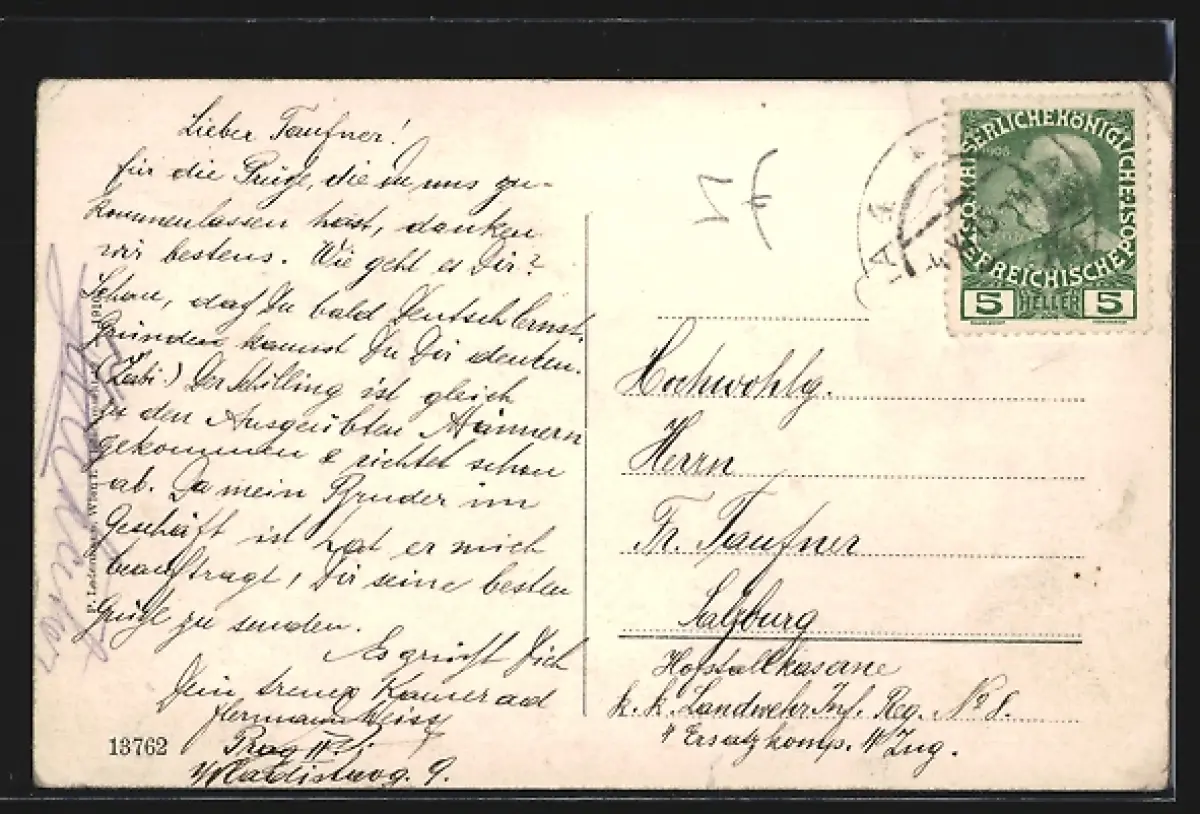 Lieber Taufner!
für die Grüße, die Du uns zu-
kommenlassen hast, danken
wir bestens. Wie geht es Dir?
Schau, daß Du bald Deutsch
kannst Du Dir denken.
Der Schilling ist gleich
zu den Ausgeübten Männern
gekommen & richtet schon
ab. Da mein Bruder im
Geschäft ist hat er mich
beauftragt, Dir seine besten
Grüße zu senden.
Es grüßt Dich
Dein treuer Kamerad
Hermann Weiss
Prag II
Wladislawg. 9.
13762
P. Ledermann, Wien I.
KAISERLICHE KÖNIGLICHE ÖSTERREICHISCHE POST
1908
5 HELLER 5
Hochwohlg.
Herrn
Fr. Taufner
Salzburg
Hofstallkasane
k. k. Landwehr Inf. Reg. No 8.
Ersatzkomp. II Zug.